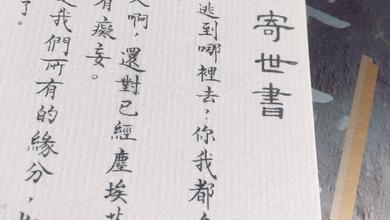 寄世書
逃到哪裡去；你我都
啊，還對已經塵埃
有癡妄。
我們所有的緣分，
了。